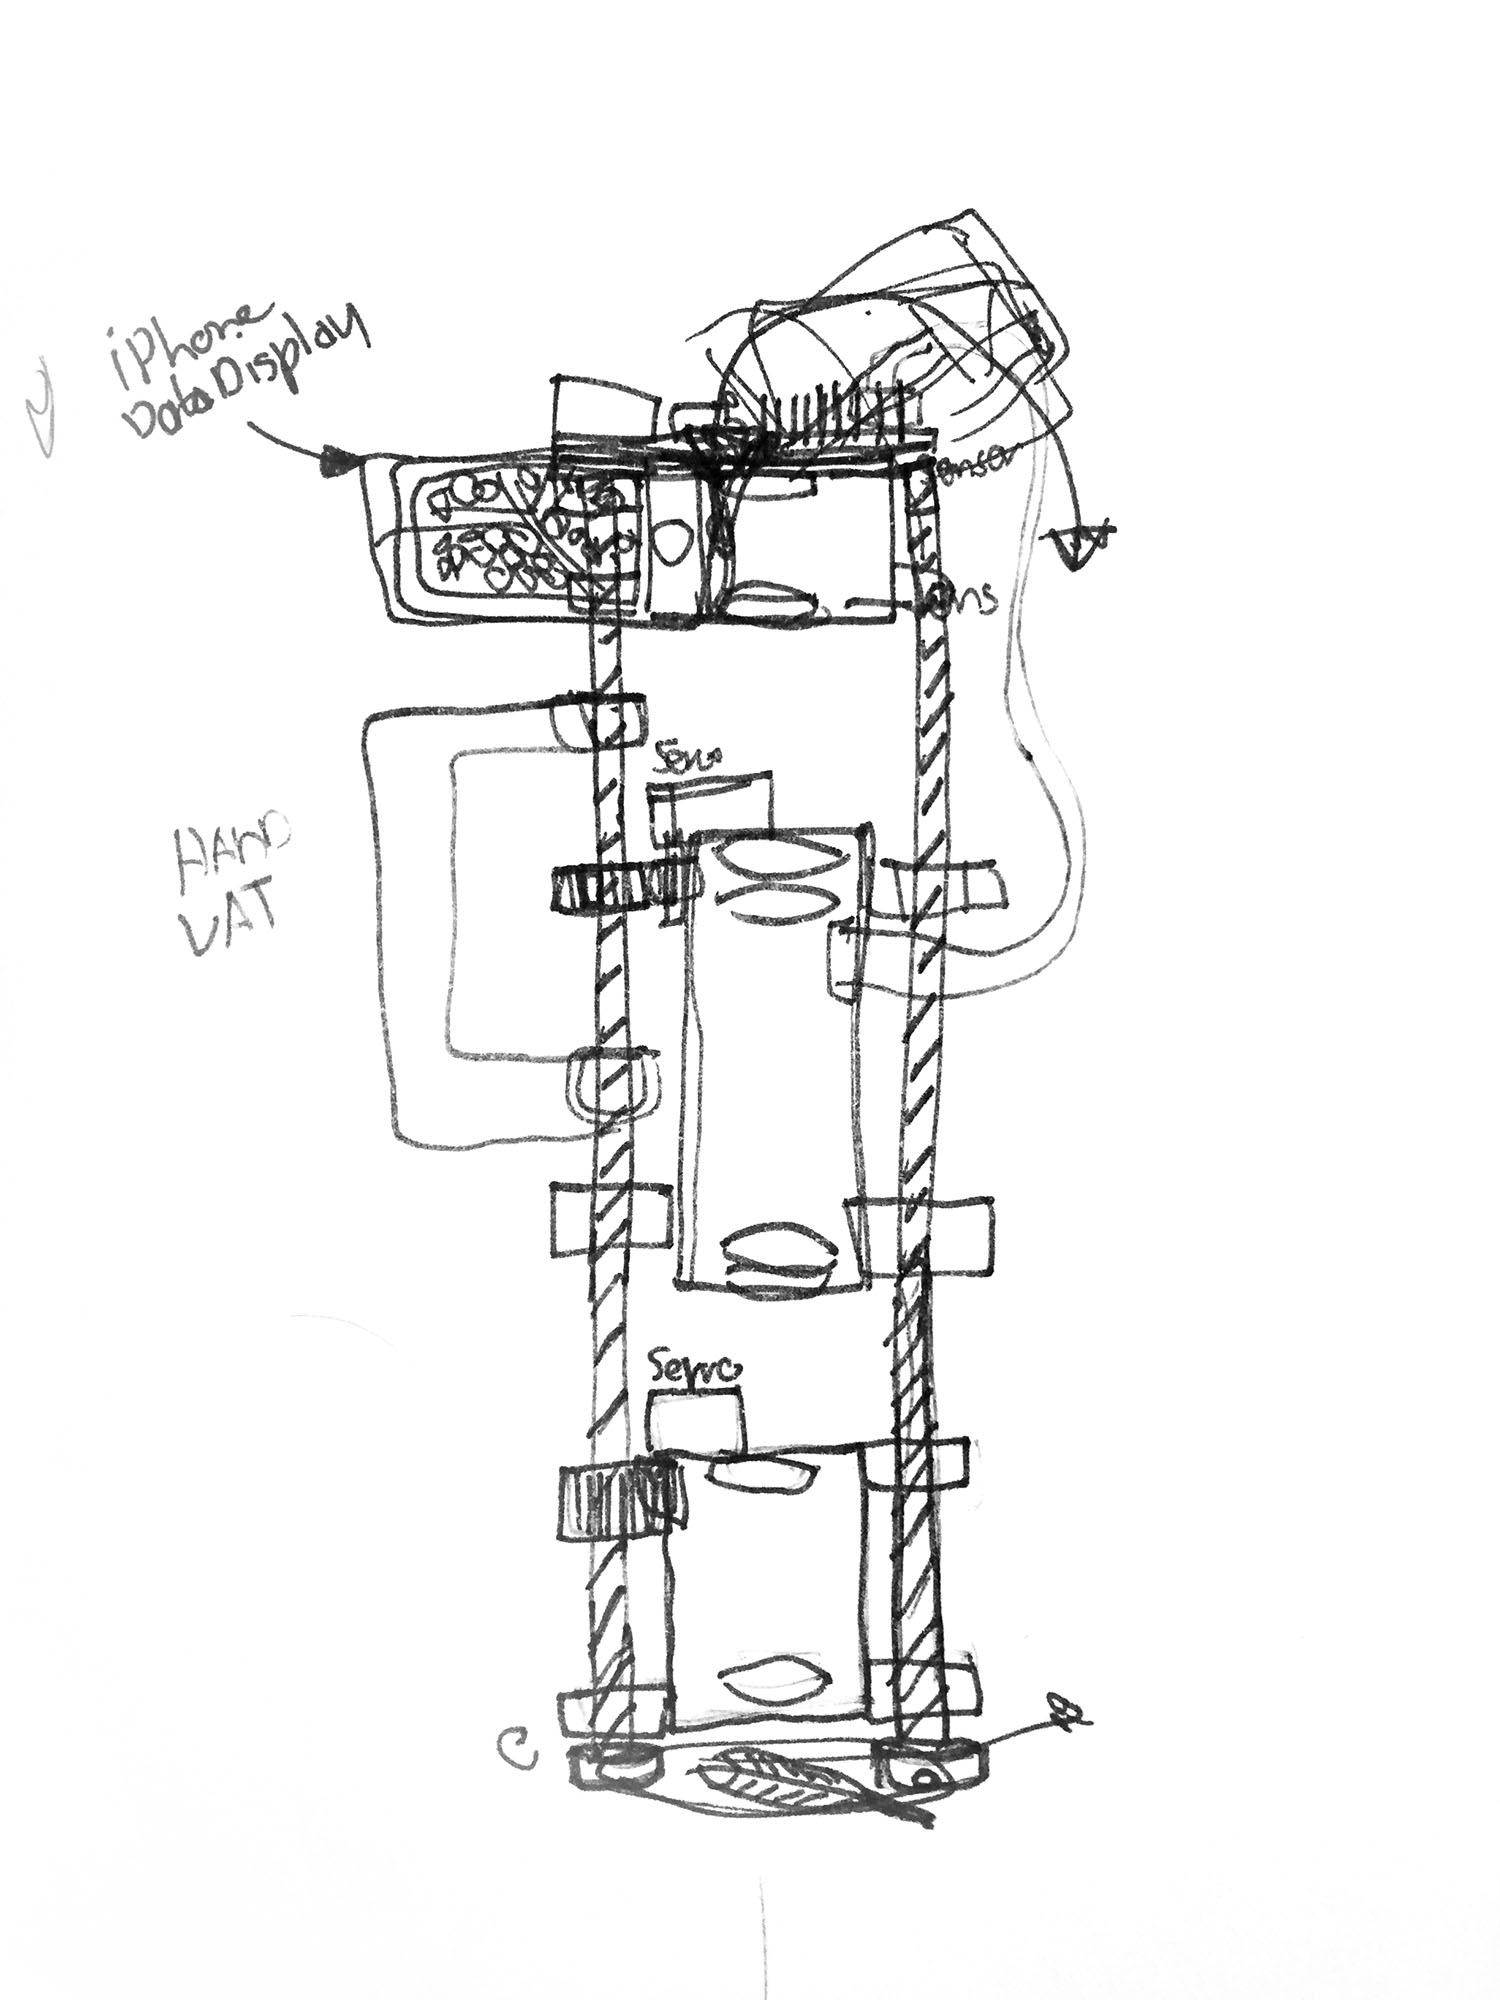 iPhone
Data Display
ensor
ens
Servo
HAND
VAT
Servo
C